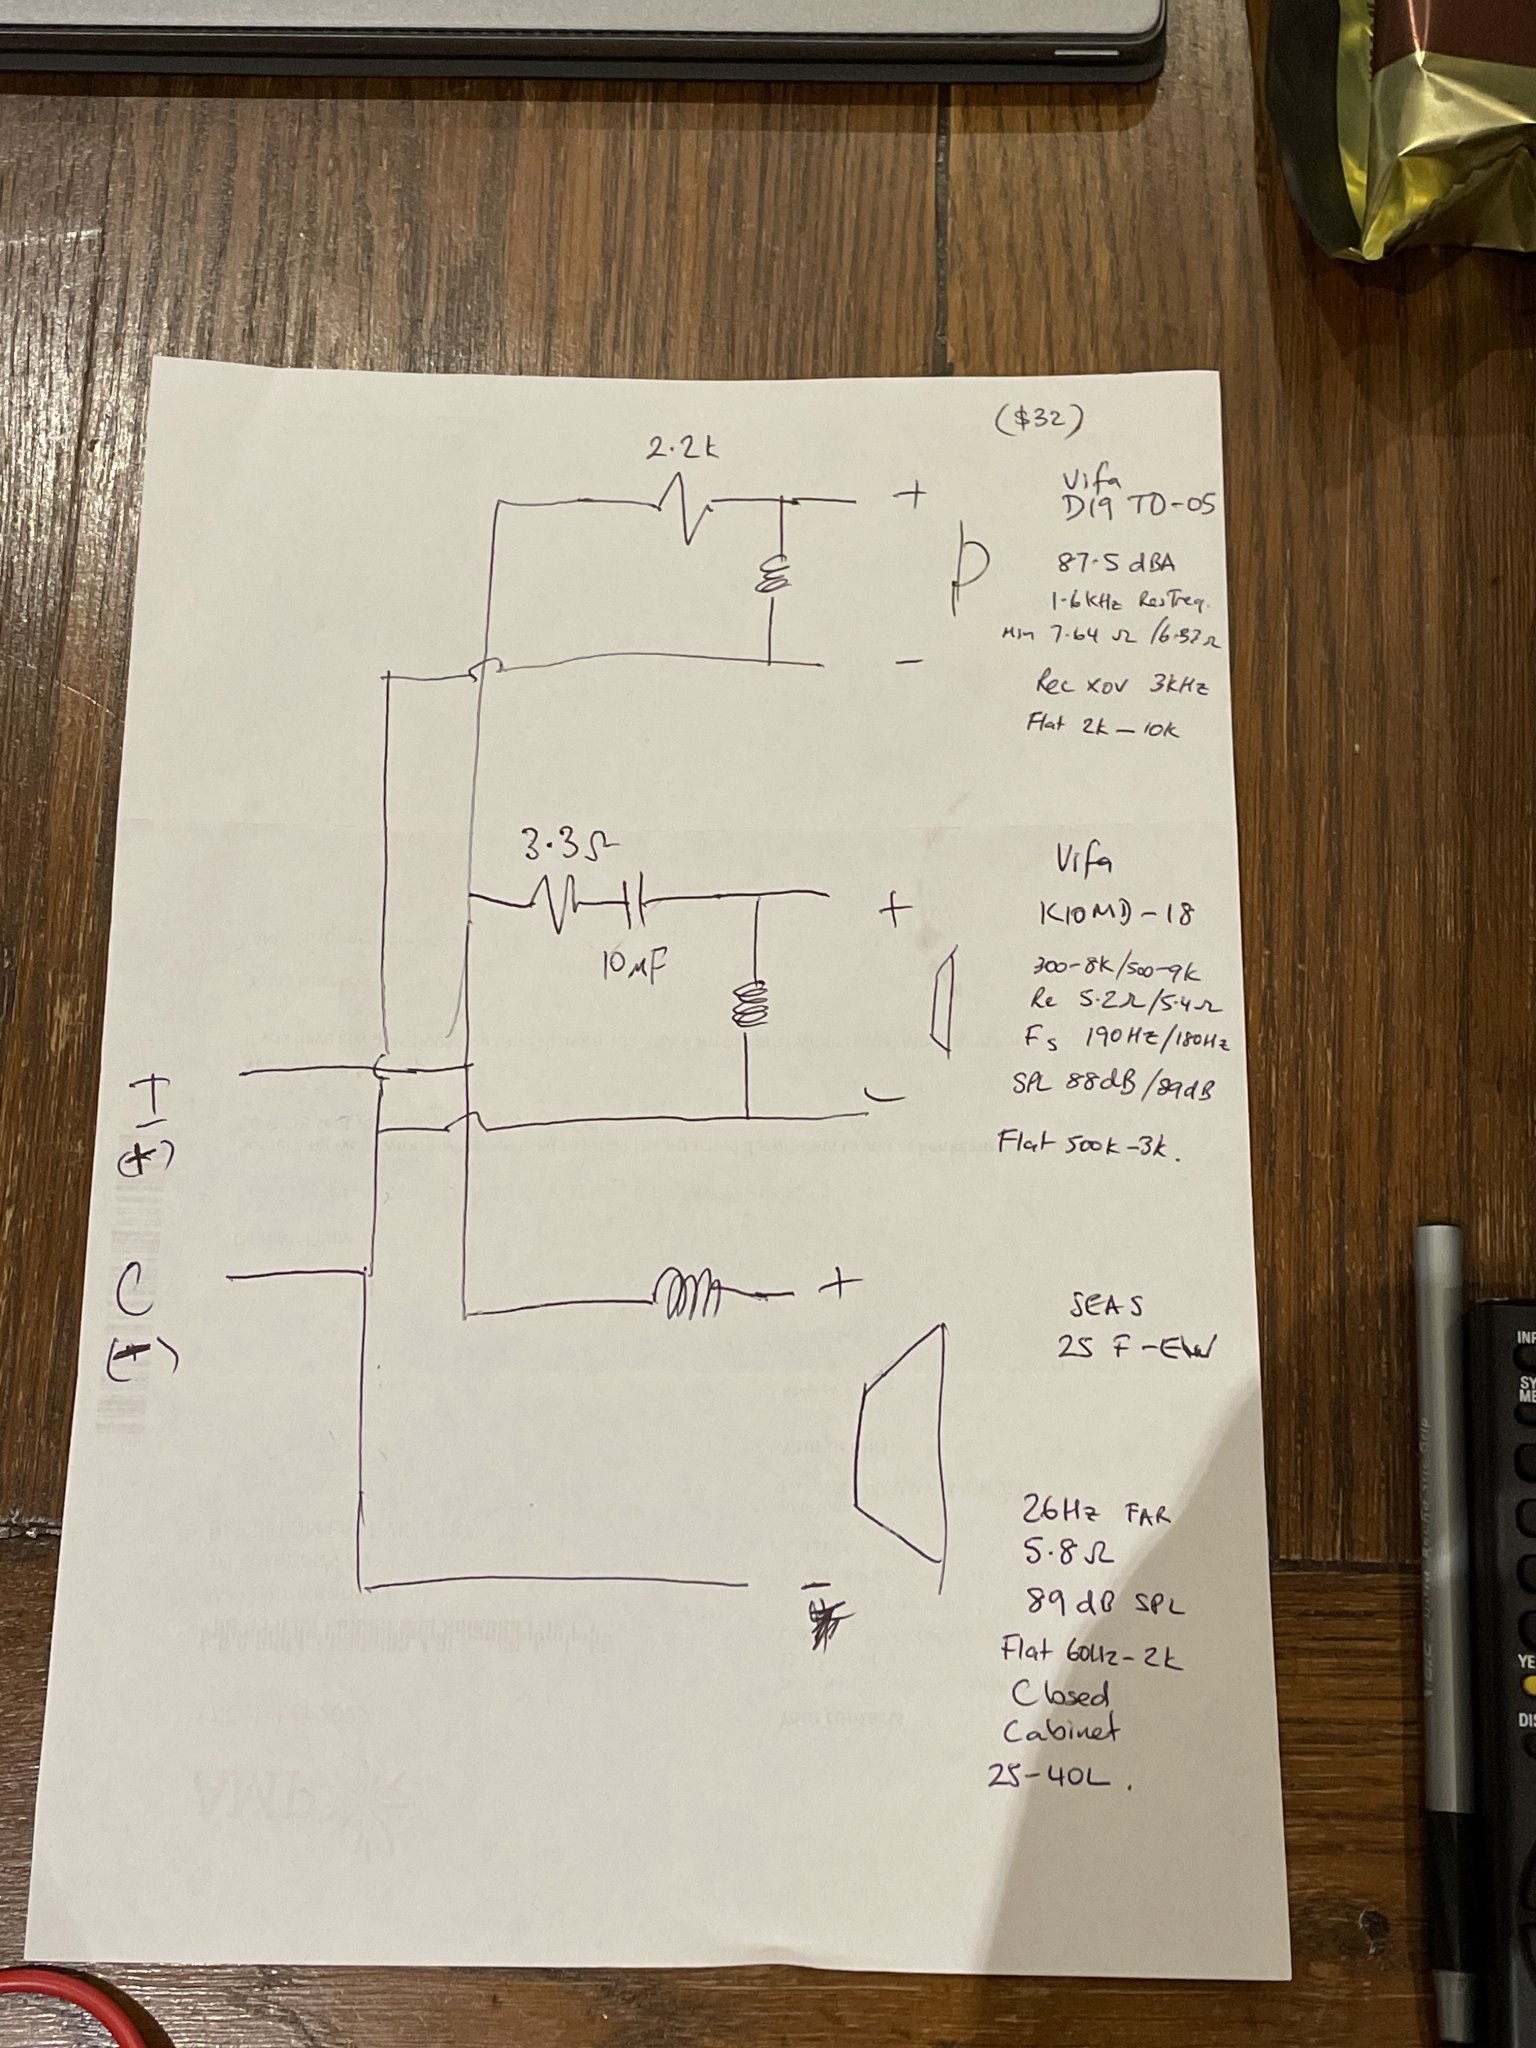 ($32)
2.2k
+
Vifa
D19 TD-05
87.5 dBA
1.6KHz Res Freq.
Min 7.64 Ω /6.32Ω
-
Rec xov 3kHz
Flat 2k - 10k
3.3Ω
10µF
+
Vifa
K10MD-18
300-8k/500-9k
Re 5.2Ω/5.4Ω
Fs 190Hz/180Hz
SPL 88dB/89dB
-
Flat 500k-3k.
C
+
SEAS
25 F-EW
26Hz FAR
5.8Ω
89 dB SPL
-
Flat 60Hz-2k
Closed
Cabinet
25-40L.
YE
DIS